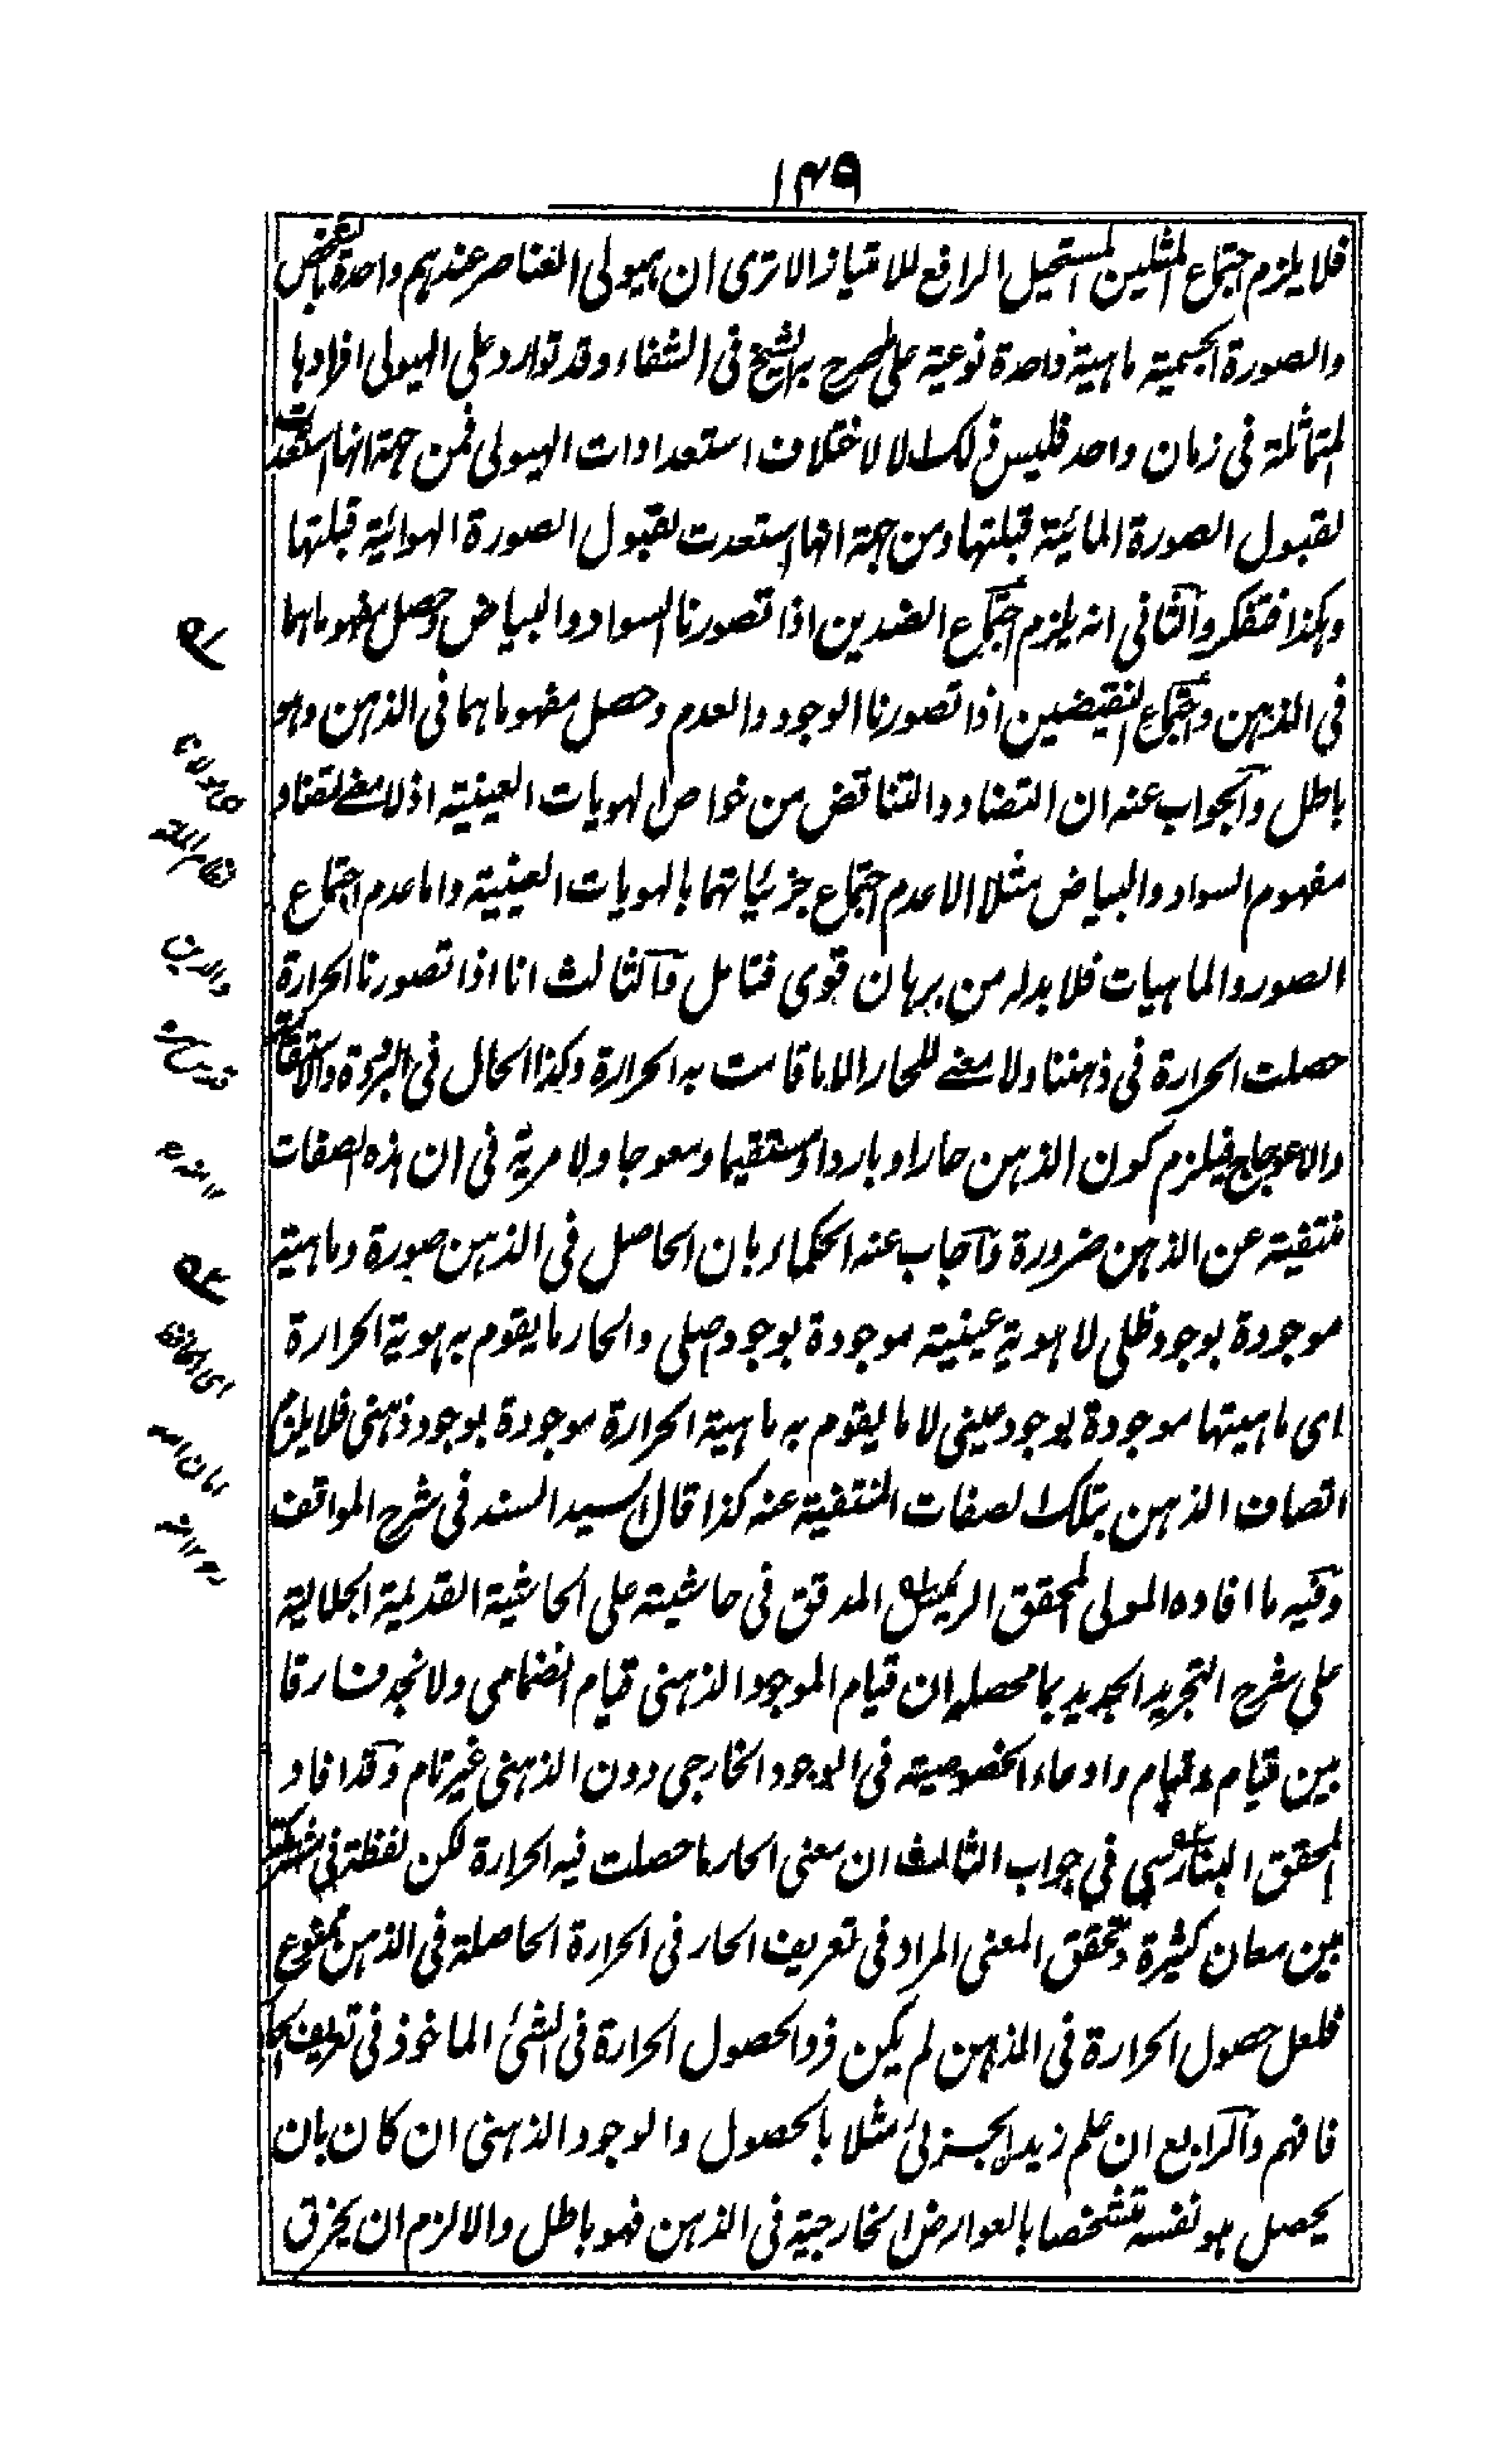 ۱۴۹
فلا يلزم اجتماع المثلين المستحيل الرافع للامتياز الا ترى ان هيولى العناصر عندهم واحدة بالشخص
والصورة الجسمية ماهية واحدة نوعية على ما صرح به الشيخ فى الشفاء وقد توارد على الهيولى افرادها
المتماثلة فى زمان واحد فليس ذلك الا لاختلاف استعدادات الهيولى فمن جهة انها استعدت
لقبول الصورة المائية قبلتها ومن جهة انها استعدت لقبول الصورة الهوائية قبلتها
وهكذا فتفكر والثانى انه يلزم اجتماع الضدين اذا تصورنا السواد والبياض وحصل مفهوماهما
فى الذهن واجتماع النقيضين اذا تصورنا الوجود والعدم وحصل مفهوماهما فى الذهن وهو
باطل والجواب عنه ان التضاد والتناقض من خواص الهويات العينية اذ لا معنے لتضاد
مفهوم السواد والبياض مثلا الا عدم اجتماع جزئياتهما بالهويات العينية واما عدم اجتماع
الصور والماهيات فلا بد له من برهان قوى فتامل والثالث انا اذا تصورنا الحرارة
حصلت الحرارة فى ذهننا ولا معنے للحار الا ما قامت به الحرارة وكذا الحال فى البرودة والاستقامة
والاعوجاج فيلزم كون الذهن حارا وباردا ومستقيما ومعوجا ولا مرية فى ان هذه الصفات
منتفية عن الذهن ضرورة واجاب عنه الحكماء بان الحاصل فى الذهن صورة وماهية
موجودة بوجود ظلى لا هوية عينية موجودة بوجود اصلى والحار ما يقوم به هوية الحرارة
اى ماهيتها موجودة بوجود عينى لا ما يقوم به ماهية الحرارة موجودة بوجود ذهنى فلا يلزم
اتصاف الذهن بتلك الصفات المنتفية عنه كذا قال السيد السند فى شرح المواقف
وفيه ما افاده المولى المحقق المدقق فى حاشيته على الحاشية القديمة الجلالية
على شرح التجريد الجديد بما محصله ان قيام الموجود الذهنى قيام انضمامى ولا نجد فارقا
بين قيام وقيام وادعاء الخصوصية فى الوجود الخارجى دون الذهنى غير تام وقد افاد
المحقق البنارسى فى جواب الثالث ان معنى الحار ما حصلت فيه الحرارة لكن لفظة فى مشتركة
بين معان كثيرة وتحقق المعنى المراد فى تعريف الحار فى الحرارة الحاصلة فى الذهن ممنوع
فلعل حصول الحرارة فى الذهن لم يكن فردا لحصول الحرارة فى الشئ الماخوذ فى تعريف الحار
فافهم والرابع ان علم زيد الجزئى مثلا بالحصول والوجود الذهنى ان كان بان
يحصل هو نفسه متشخصا بالعوارض الخارجية فى الذهن فهو باطل والا لزم ان يخرق